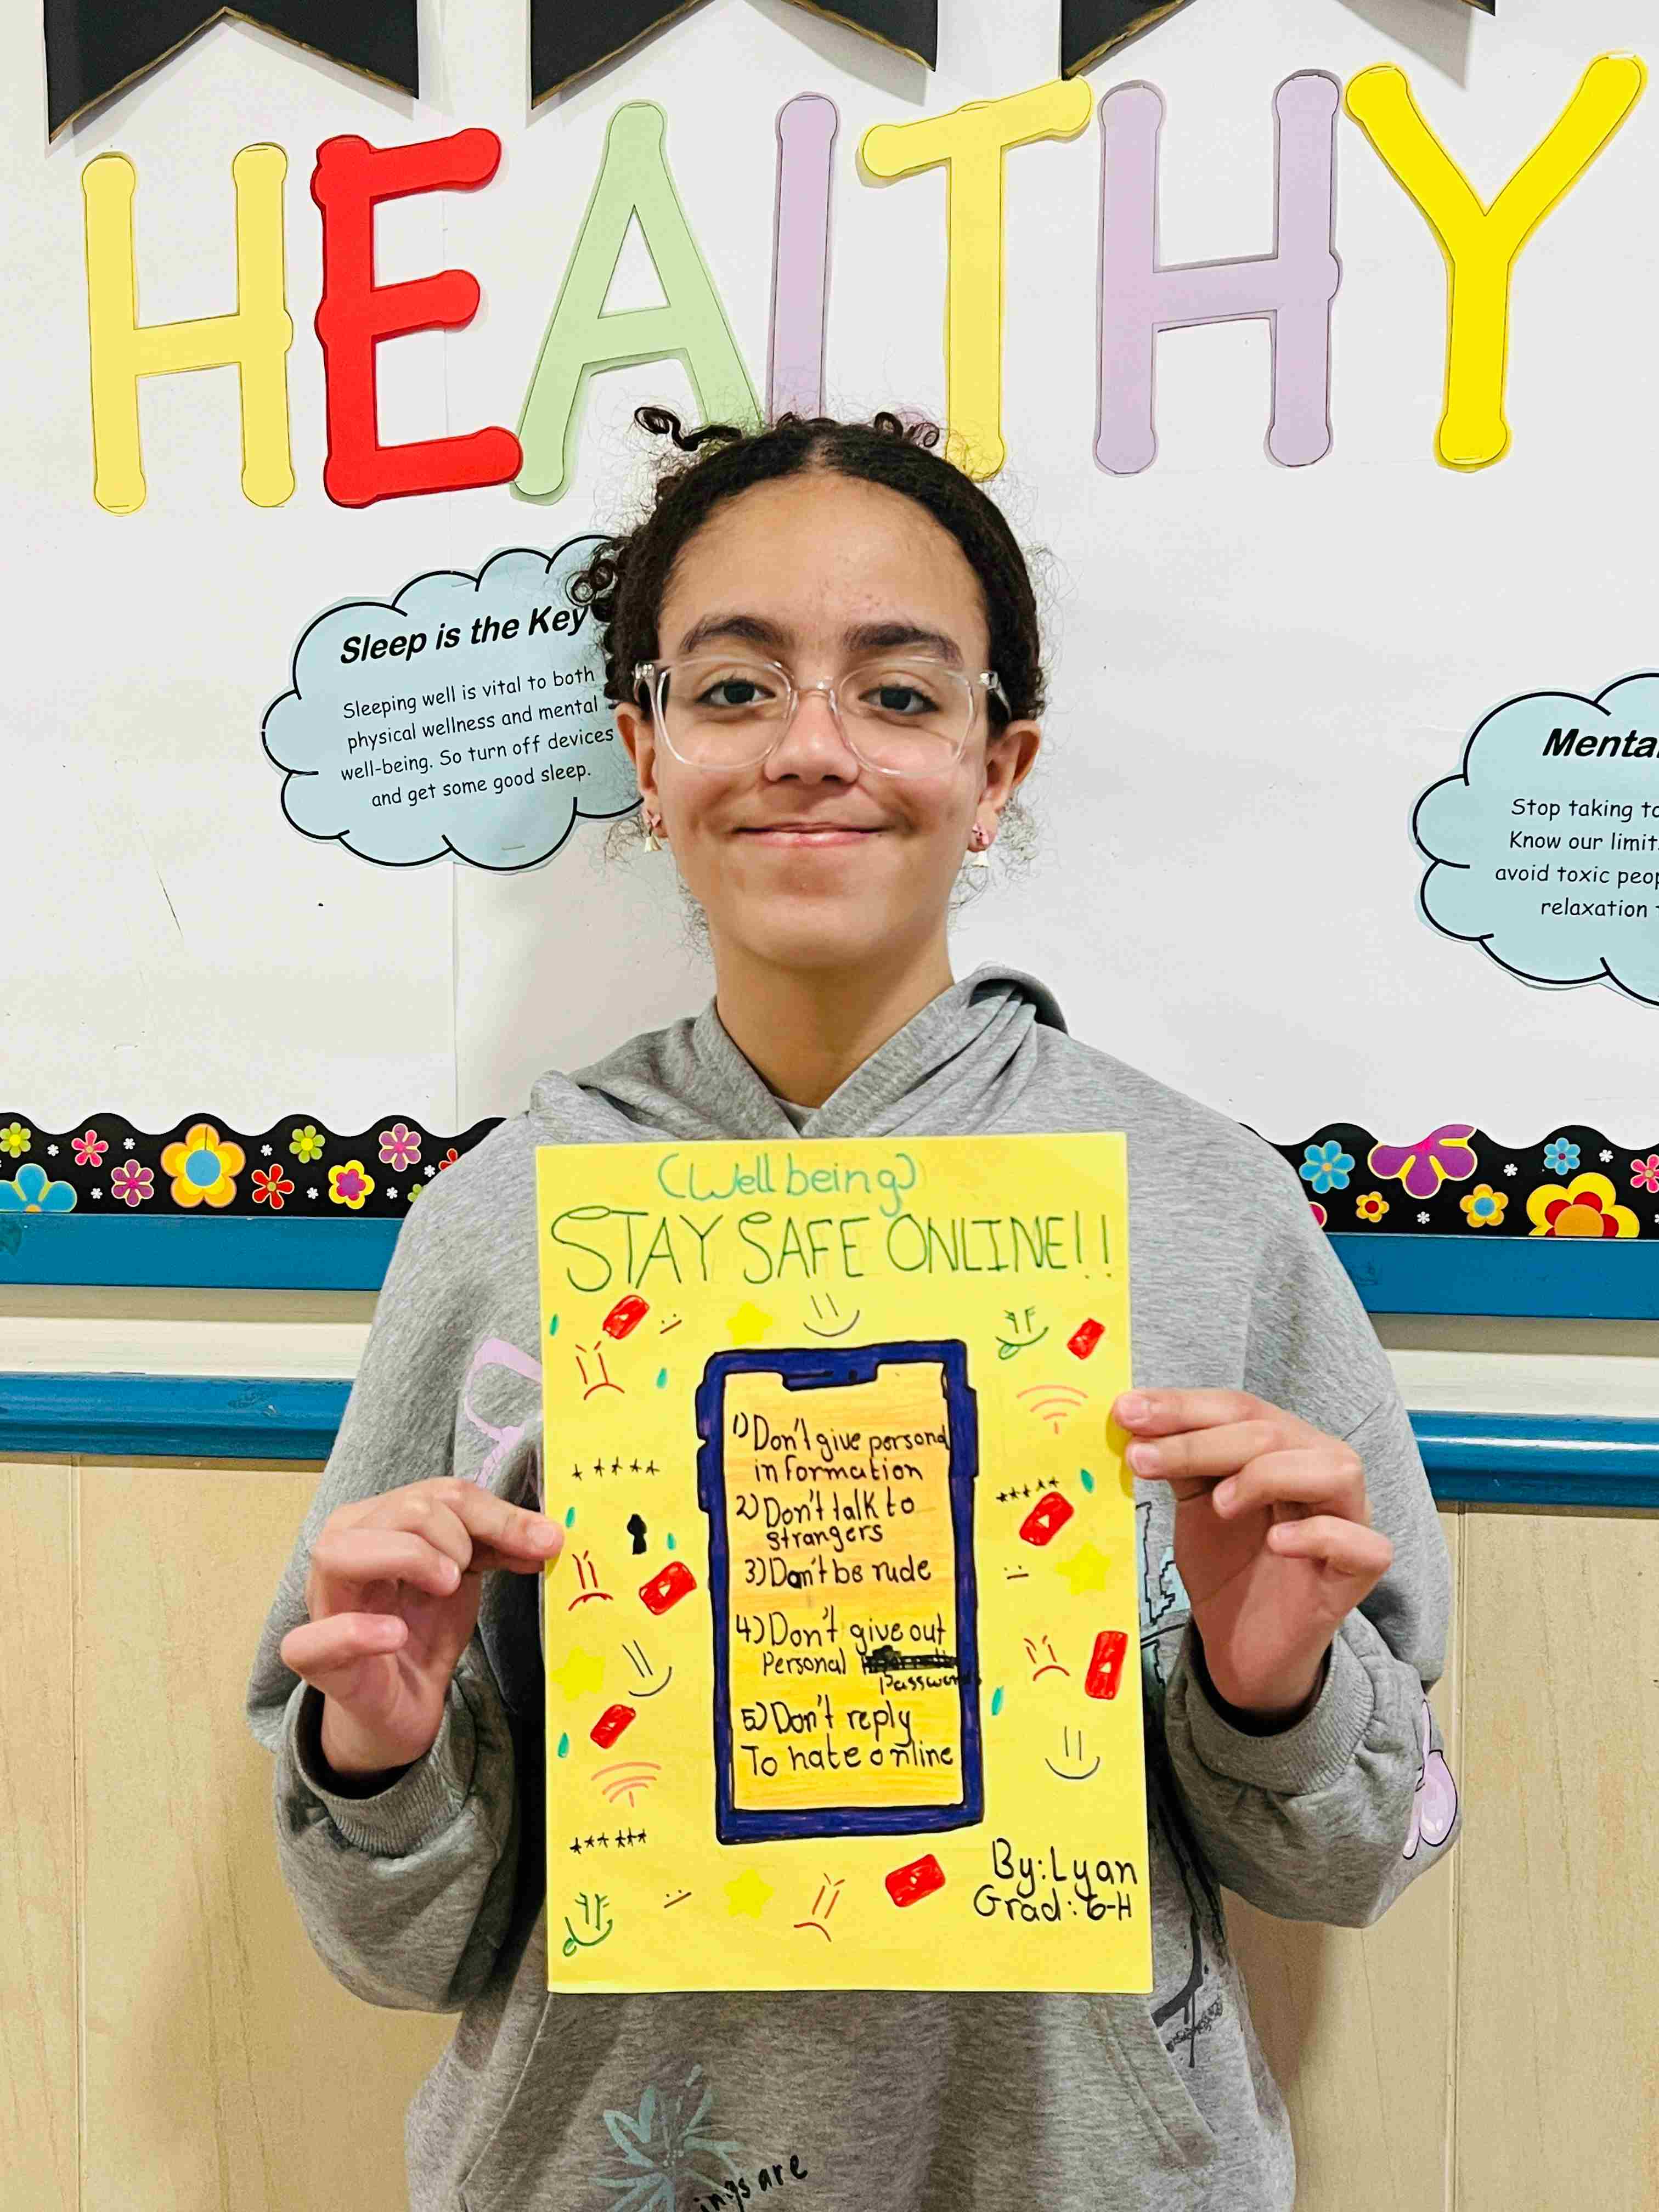 HEALTHY
Sleep is the Key
Sleeping well is vital to both
physical wellness and mental
well-being. So turn off devices
and get some good sleep.
Menta
Stop taking to
Know our limit
avoid toxic peop
relaxation
(Well being)
STAY SAFE ONLINE!!
1) Don't give personal
information
2) Don't talk to
strangers
3) Don't be rude
4) Don't give out
Personal
Passwords
5) Don't reply
To hate online
By: Lyan
Grad: 6-H
ings are